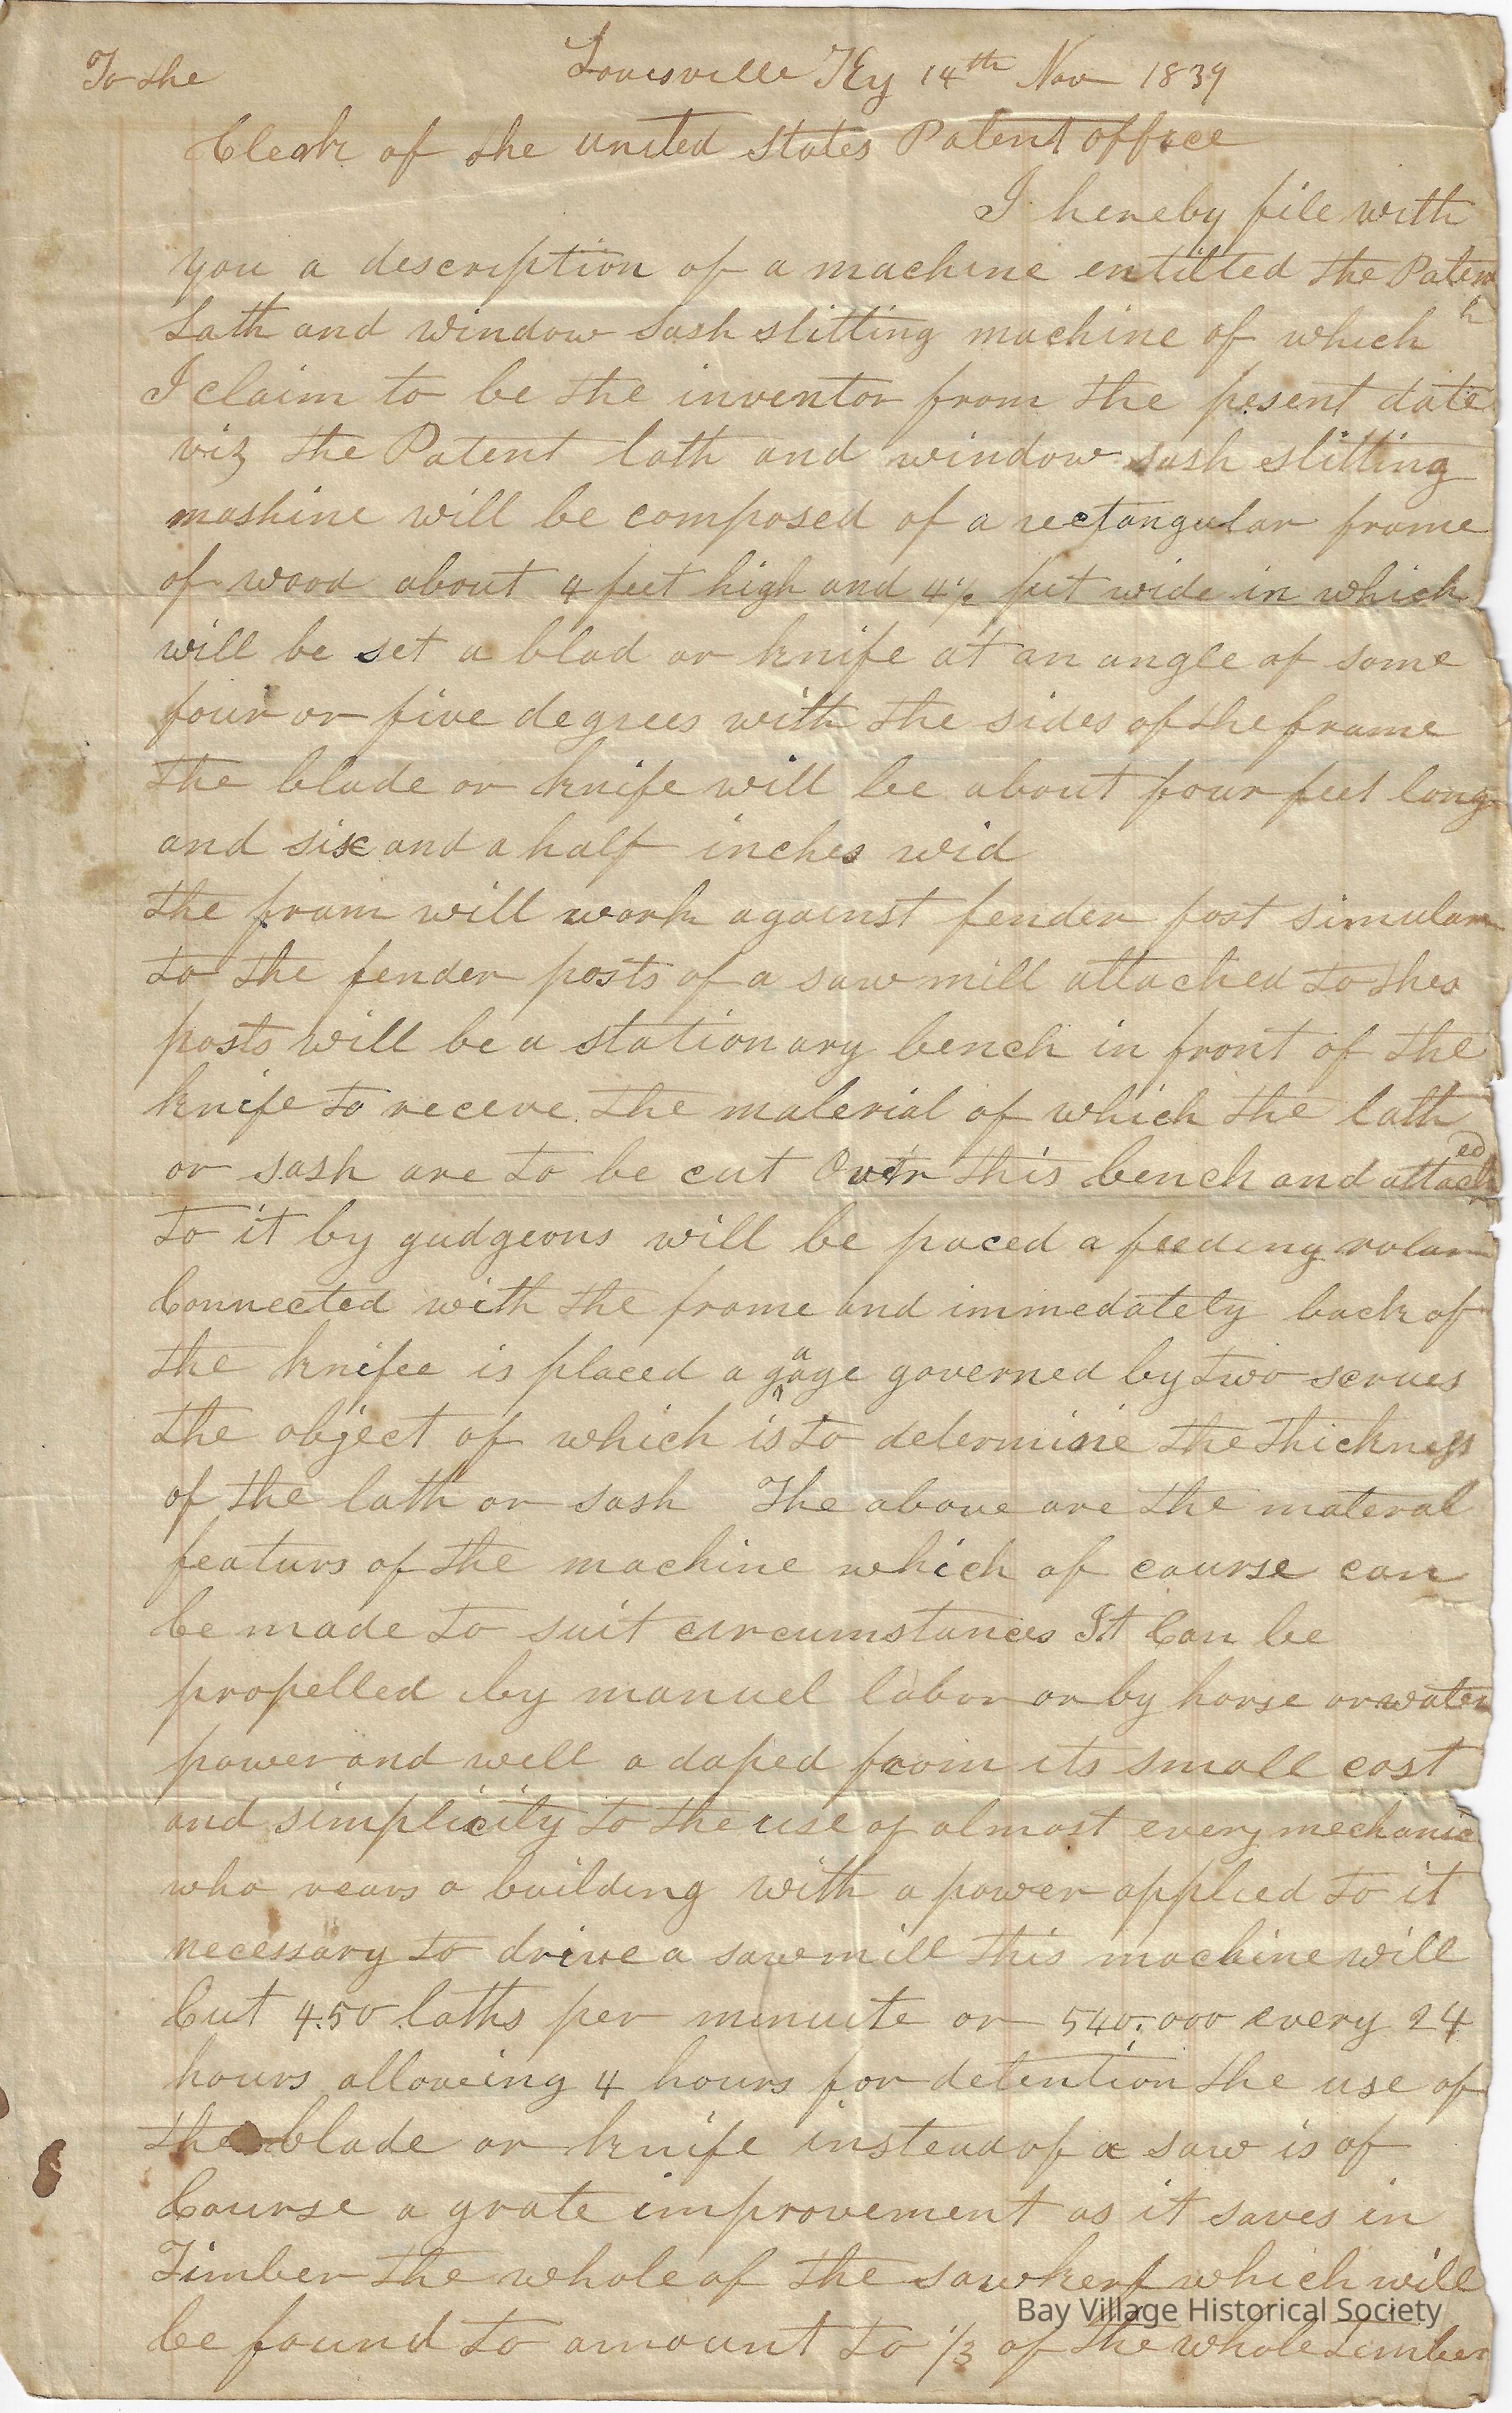 To the Louisville Ky 14th Nov 1839
Clerk of the united states Patent office
I hereby file with
you a description of a machine entitled the Paten
Lath and window sash slitting machine of which
I claim to be the inventor from the pesent date
viz the Patent lath and window sash slitting
mashine will be composed of a rectangular frame
of wood about 4 feet high and 4½ feet wide in which
will be set a blad or knife at an angle of some
four or five degrees with the sides of the frame
the blade or knife will be about four feet long
and six and a half inches wid
the fram will work against fender post simular
to the fender posts of a saw mill attached to thes
posts will be a stationary bench in front of the
knife to receve the material of which the lath
or sash are to be cut Over this bench and attached
to it by gudgeons will be paced a feeding rolar
Connected with the frame and immedately back of
the knifee is placed a gage governed by two scrues
the object of which is to determine the thickness
of the lath or sash The above are the materal
featurs of the machine which of course can
be made to suit circumstances It Can be
propelled by manuel labor or by horse or water
power and well adaped from its small cost
and simplicity to the use of almost every mechanic
who rears a building with a power applied to it
necessary to drive a sawmill this machine will
Cut 450 laths per minuite or 540.000 every 24
hours allowing 4 hours for detention the use of
the blade or knife instead of a saw is of
Course a grate improvement as it saves in
Timber the whole of the saw kerf which will
be found to amount to 1/3 of the whole timber
Bay Village Historical Society